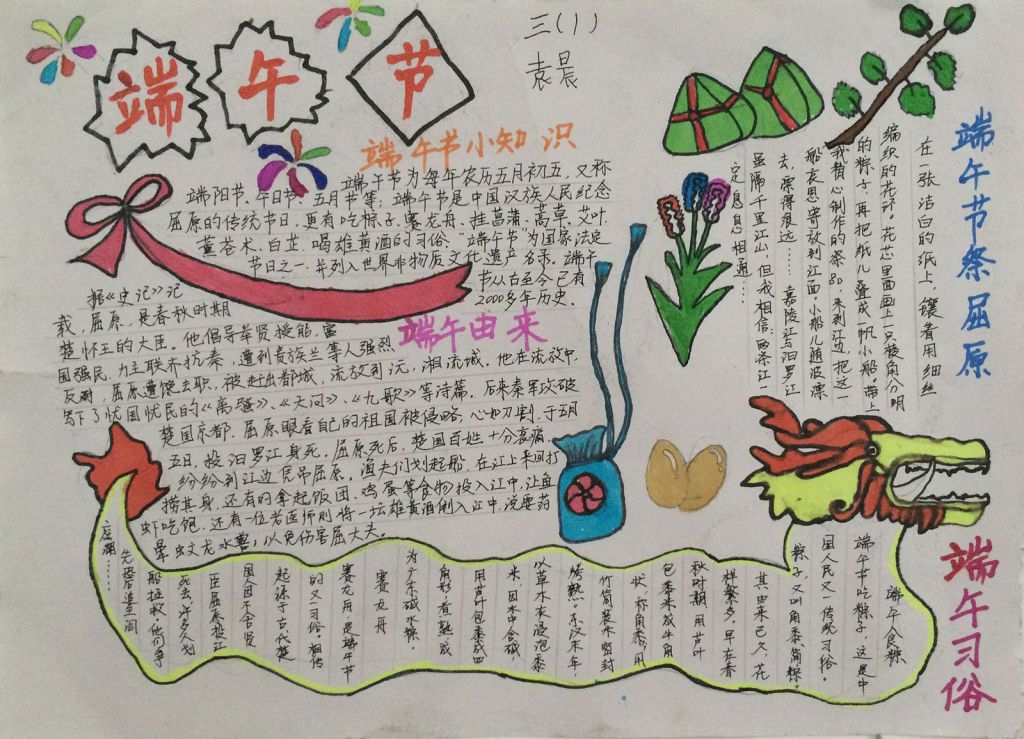 端午节
三(1)
袁晨
端午节小知识
端午节为每年农历五月初五,又称
端阳节、午日节、五月节等;端午节是中国汉族人民纪念
屈原的传统节日,更有吃粽子,赛龙舟,挂菖蒲、蒿草、艾叶,
薰苍术、白芷,喝雄黄酒的习俗。"端午节"为国家法定
节日之一,并列入世界非物质文化遗产名录。端午
节从古至今已有
2000多年历史.
端午由来
据《史记》记
载,屈原,是春秋时期
楚怀王的大臣。他倡导举贤授能,富
国强民,力主联齐抗秦,遭到贵族兰等人强烈
反对,屈原遭馋去职,被赶出都城,流放到沅,湘流域。他在流放中,
写下了忧国忧民的《离骚》、《天问》、《九歌》等诗篇。后来秦军攻破
楚国京都。屈原眼看自己的祖国被侵略,心如刀割,于五月
五日,投汨罗江身死。屈原死后,楚国百姓十分哀痛,
纷纷到江边凭吊屈原。渔夫们划起船,在江上来回打
捞其身,还有的拿起饭团、鸡蛋等食物投入江中,让鱼
虾吃饱,还有一位老医师则将一坛雄黄酒倒入江中,说要药
晕蛟龙水兽,以免伤害屈大夫。
端午节祭屈原
在一张洁白的纸上,镶着用细丝
编织的花环。花芯里面画上一只棱角分明
的粽子,再把纸儿叠成一帆小船。带上
我精心制作的祭品,来到江边,把这一
船哀思寄放到江面,小船儿随波漂
去,漂得很远……嘉陵江与汨罗江
虽隔千里江山,但我相信:两条江一
定息息相通…
端午习俗
端午食粽
端午节吃粽子,这是中
国人民又一传统习俗。
粽子,又叫角黍、筒粽。
其由来已久,花
样繁多。早在春
秋时期,用菰叶
包黍米成牛角
状,称角黍;用
竹筒装米密封
烤熟。东汉末年,
以草木灰浸泡黍
米,因水中含碱,
用菰叶包黍成四
角形,煮熟,成
为广东碱水粽。
赛龙舟
赛龙舟,是端午节
的又一习俗。相传
起源于古代楚
国人因不舍古贤
臣屈原投江
死去,许多人划
船拯救。他们争
先恐后追至洞
庭湖……